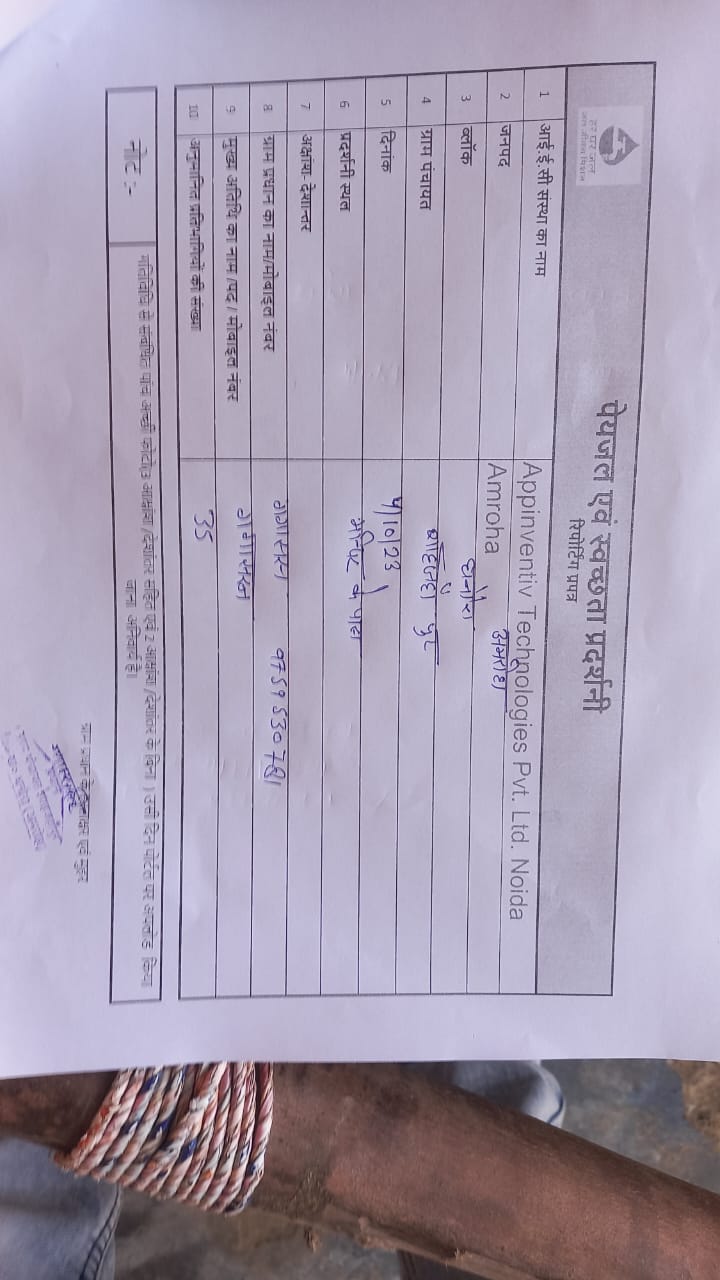 हर घर जल
जल जीवन मिशन
पेयजल एवं स्वच्छता प्रदर्शनी
रिपोर्टिंग प्रपत्र
1 आई.ई.सी संस्था का नाम Appinventiv Technologies Pvt. Ltd. Noida
2 जनपद Amroha अमरोहा
3 ब्लॉक
4 ग्राम पंचायत पुर
5 दिनांक 4/10/23
6 प्रदर्शनी स्थल मन्दिर के पास
7 अक्षांश- देशान्तर
8 ग्राम प्रधान का नाम/मोबाइल नंबर गंगासरन 9759530781
9 मुख्य अतिथि का नाम /पद / मोबाइल नंबर गंगासरन
10 अनुमानित प्रतिभागियों की संख्या 35
नोट :- गतिविधि से संबन्धित पांच अच्छी फोटो(3 अक्षांश /देशांतर सहित एवं 2 अक्षांश /देशांतर के बिना ) उसी दिन पोर्टल पर अपलोड किया
जाना अनिवार्य है।
ग्राम प्रधान के हस्ताक्षर एवं मुहर